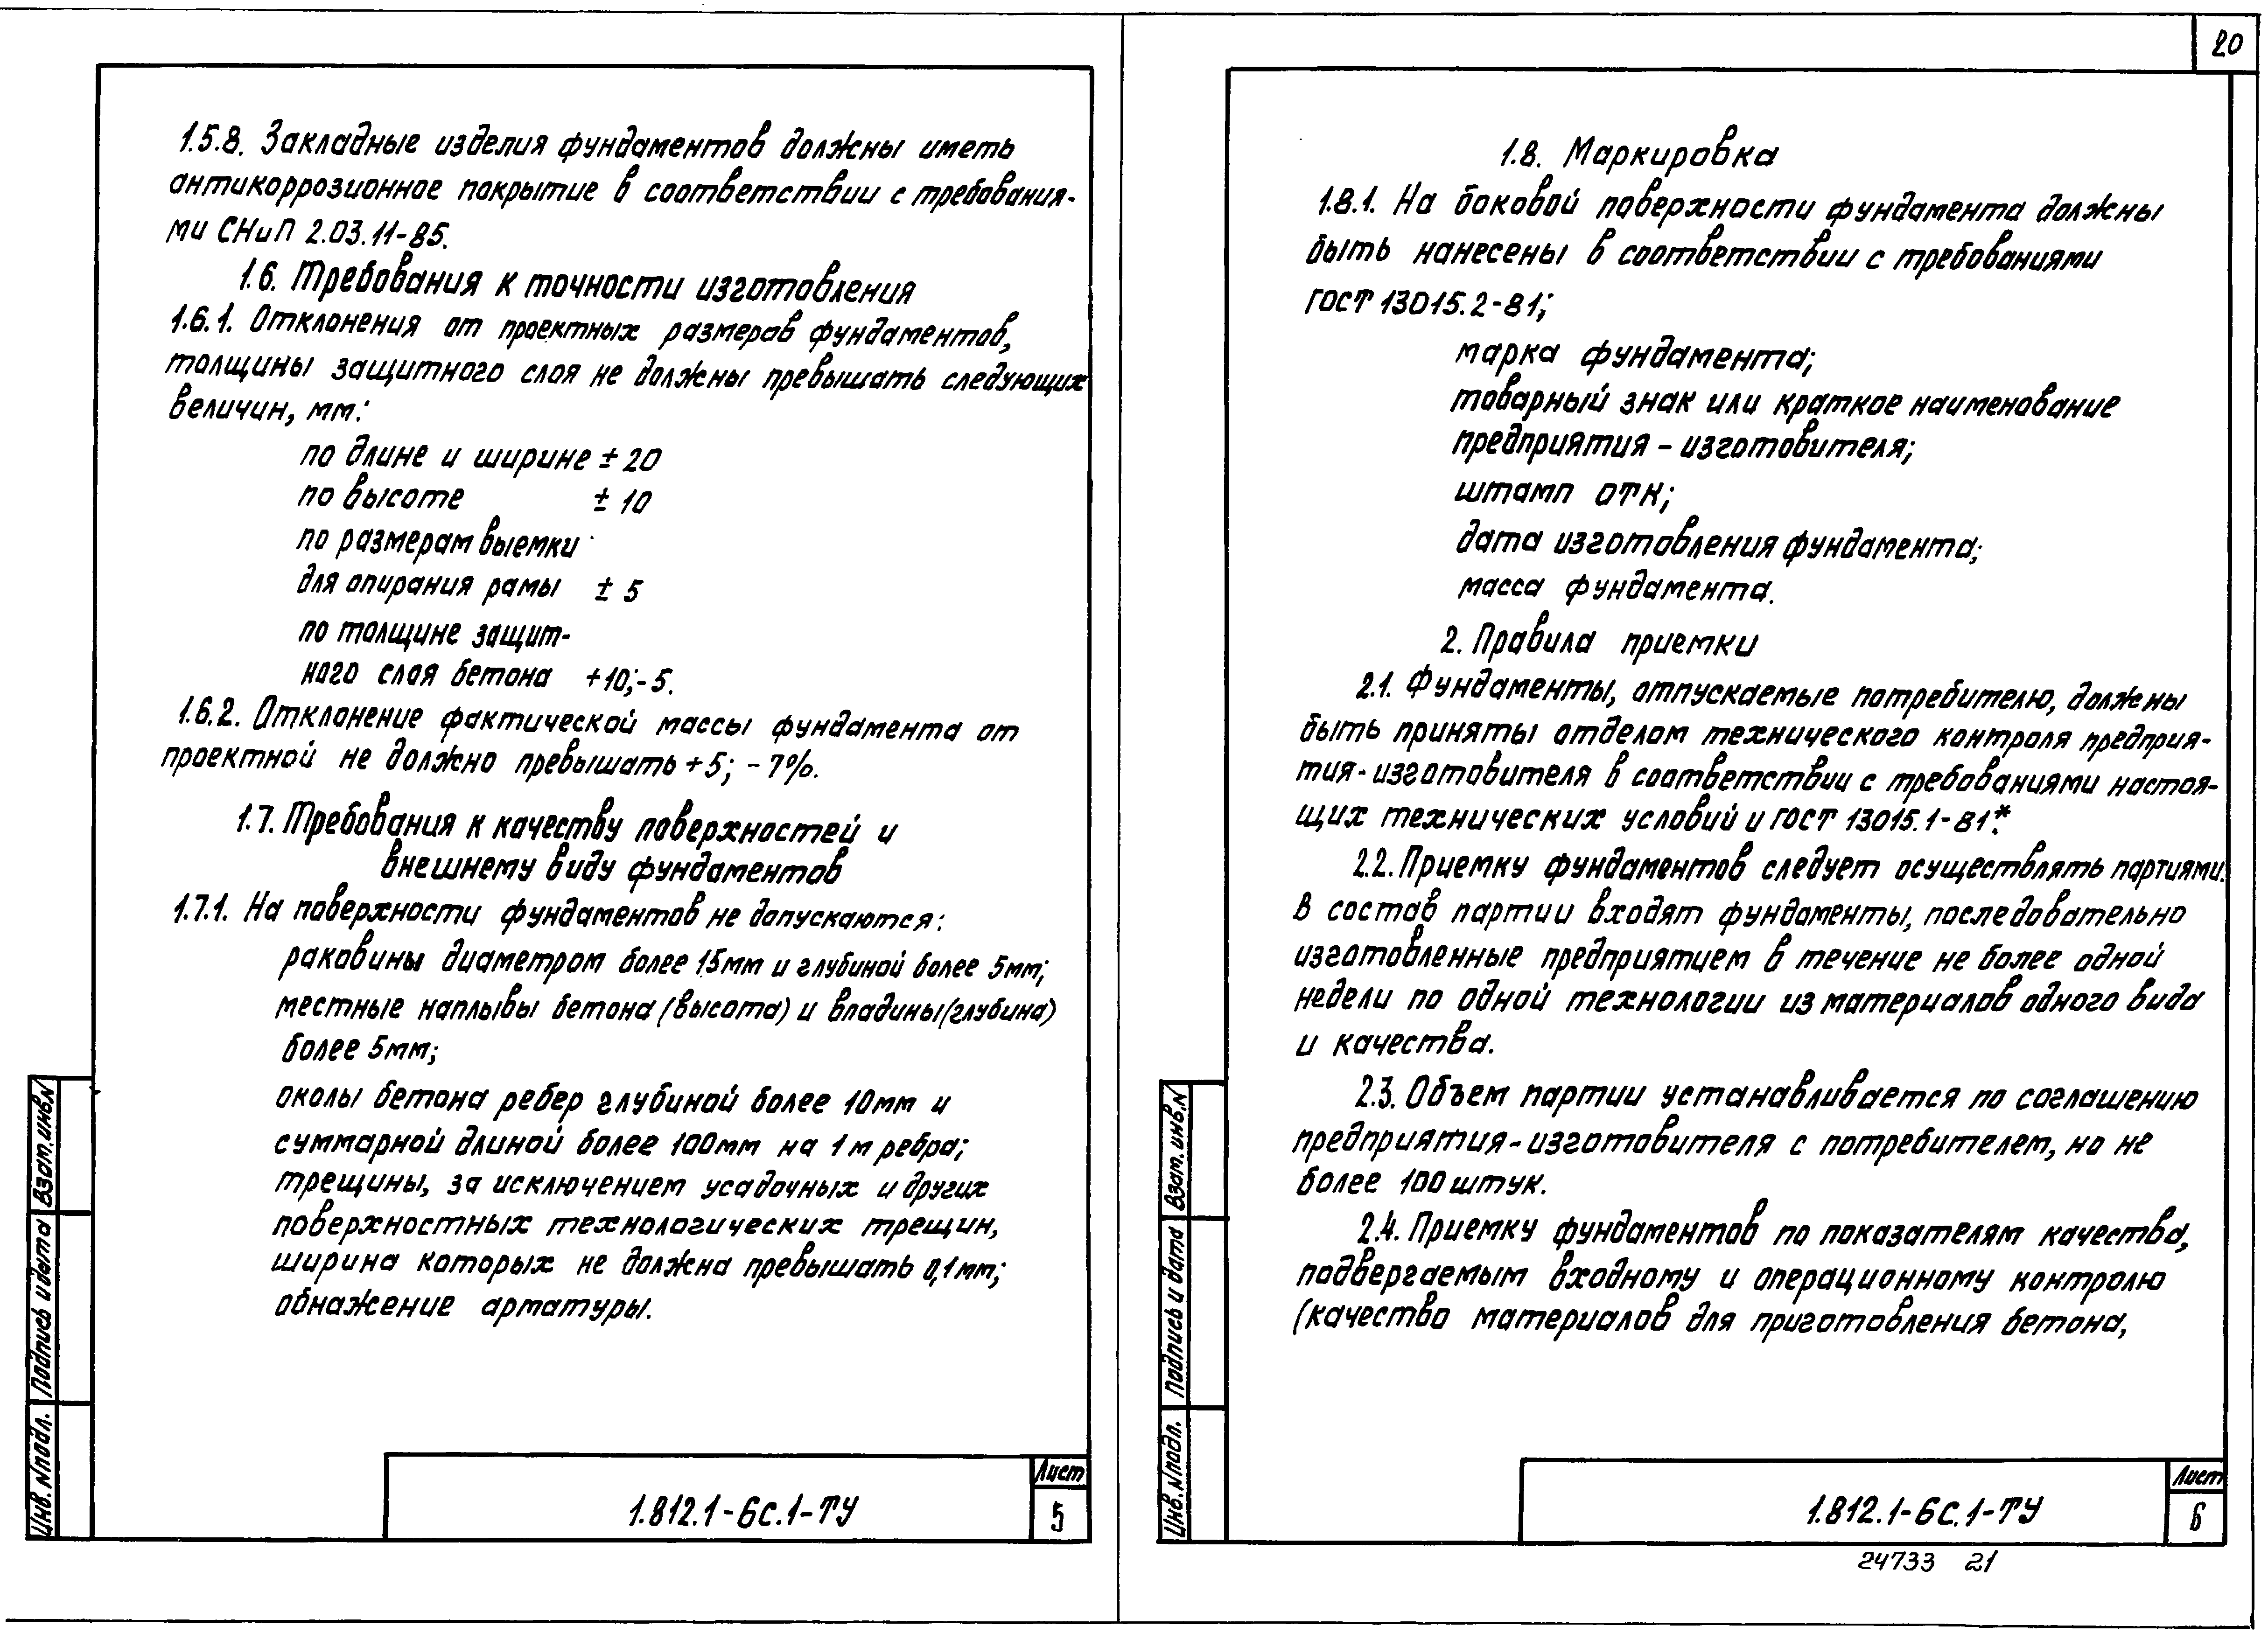 1.5.8. Закладные изделия фундаментов должны иметь
антикоррозионное покрытие в соответствии с требования-
ми СНиП 2.03.11-85.
1.6. Требования к точности изготовления
1.6.1. Отклонения от проектных размеров фундаментов,
толщины защитного слоя не должны превышать следующих
величин, мм:
по длине и ширине ± 20
по высоте ± 10
по размерам выемки
для опирания рамы ± 5
по толщине защит-
ного слоя бетона +10;-5.
1.6.2. Отклонение фактической массы фундамента от
проектной не должно превышать +5; -7%.
1.7. Требования к качеству поверхностей и
внешнему виду фундаментов
1.7.1. На поверхности фундаментов не допускаются:
раковины диаметром более 15мм и глубиной более 5мм;
местные наплывы бетона (высота) и впадины (глубина)
более 5мм;
околы бетона ребер глубиной более 10мм и
суммарной длиной более 100мм на 1 м ребра;
трещины, за исключением усадочных и других
поверхностных технологических трещин,
ширина которых не должна превышать 0,1мм;
обнажение арматуры.
Взам. инв. N
Подпись и дата
Инв. N подл.
1.812.1-6с.1-ТУ
Лист
5
20
1.8. Маркировка
1.8.1. На боковой поверхности фундамента должны
быть нанесены в соответствии с требованиями
ГОСТ 13015.2-81;
марка фундамента;
товарный знак или краткое наименование
предприятия - изготовителя;
штамп ОТК;
дата изготовления фундамента;
масса фундамента.
2. Правила приемки
2.1. Фундаменты, отпускаемые потребителю, должны
быть приняты отделом технического контроля предприя-
тия-изготовителя в соответствии с требованиями настоя-
щих технических условий и ГОСТ 13015.1-81*.
2.2. Приемку фундаментов следует осуществлять партиями.
В состав партии входят фундаменты, последовательно
изготовленные предприятием в течение не более одной
недели по одной технологии из материалов одного вида
и качества.
2.3. Объем партии устанавливается по соглашению
предприятия-изготовителя с потребителем, но не
более 100 штук.
2.4. Приемку фундаментов по показателям качества,
подвергаемым входному и операционному контролю
(качество материалов для приготовления бетона,
Взам. инв. N
Подпись и дата
Инв. N подл.
1.812.1-6с.1-ТУ
Лист
6
24733 21